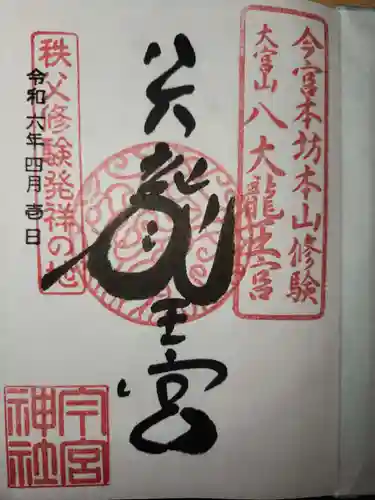 今宮本坊本山修験
大宮山 八大龍王宮
八大龍王宮
秩父修験発祥の地
令和六年四月壱日
今宮
神社